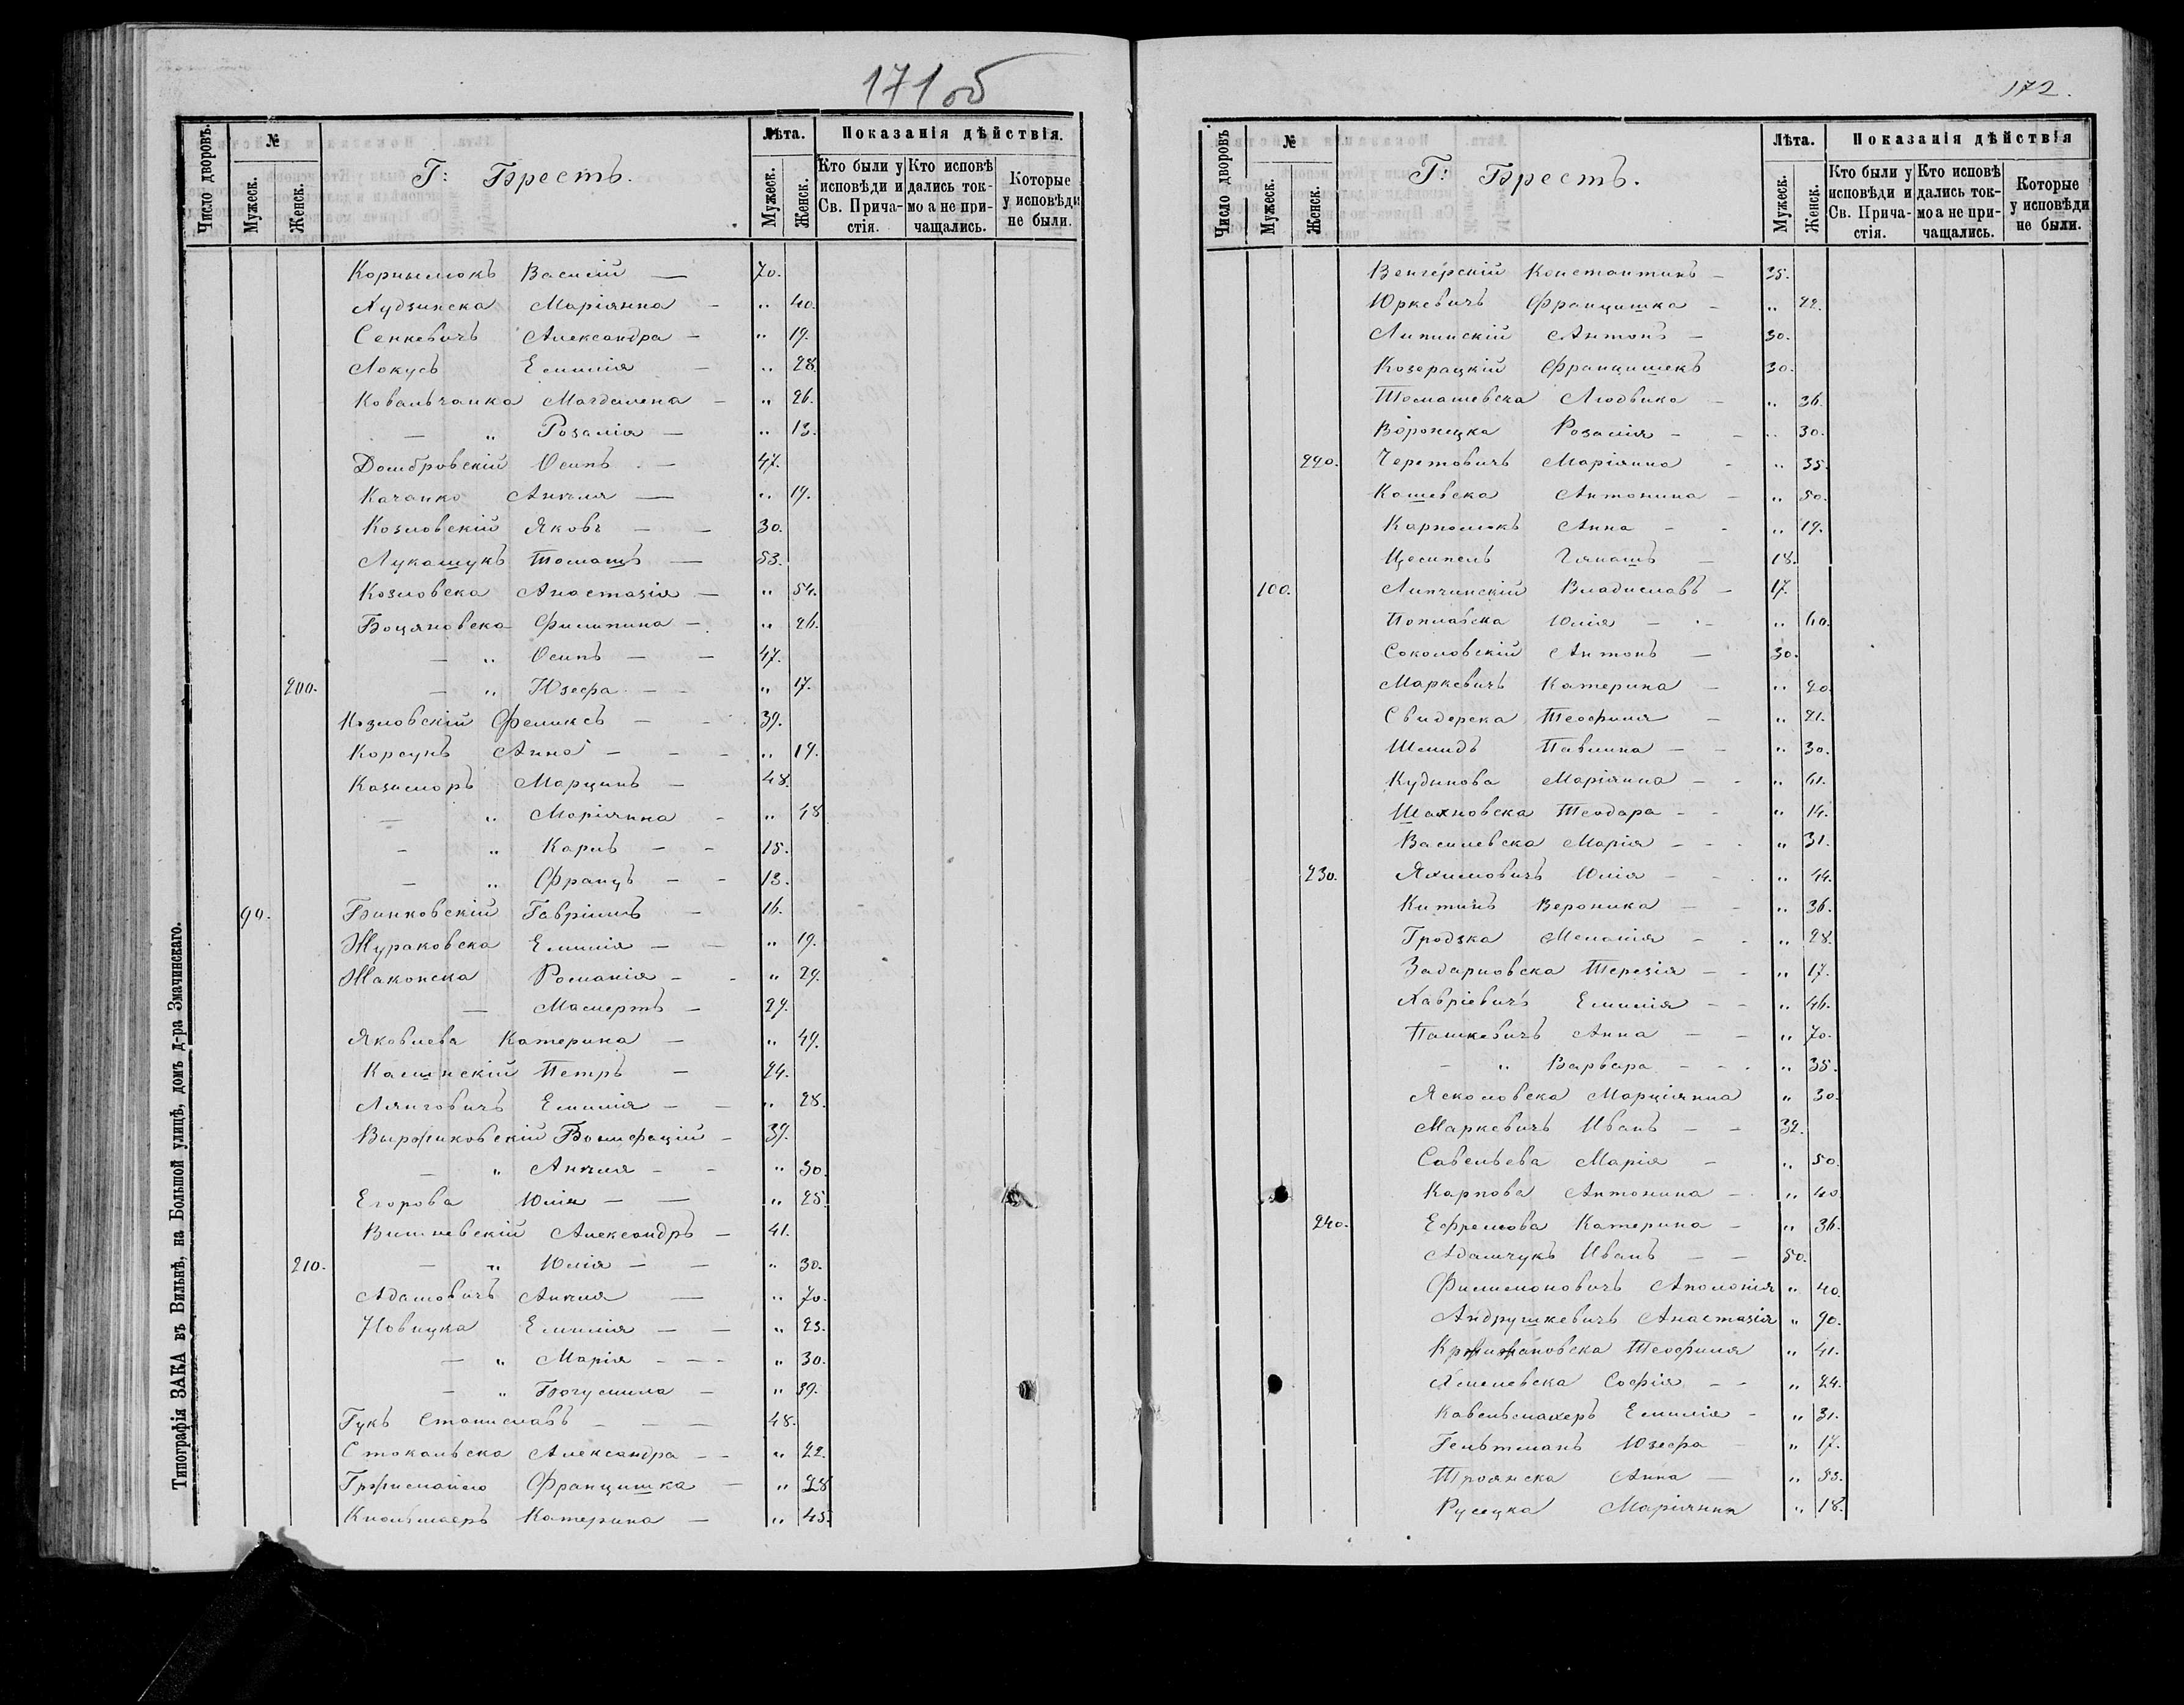 171 об
Число дворовъ.
№
Мужеск.
Женск.
Г: Брестъ.
Лѣта.
Мужеск.
Женск.
Показанія дѣйствія.
Кто были у исповѣди и Св. Прича-стія.
Кто исповѣ дались ток-мо а не при-чащались.
Которые у исповѣди не были.
Корнылюкъ Василій — 70.
Лудзинска Маріянна - „ 40.
Сенкевичъ Александра - „ 19.
Локусъ Емилія - „ 28.
Ковальчанка Магдалена - „ 26.
— „ Розалія — „ 13.
Домбровскій Осипъ - 47.
Качанко Анеля — „ 19.
Козловскій Яковъ — 30.
Лукашукъ Томашъ — 53.
Козловска Анастазія — „ 54.
Боцяновска Филипина - „ 26.
— „ Осипъ — 47.
200. — „ Юзефа - „ 17.
Козловскій Феликсъ — 39.
Корсунъ Анна — „ 19.
Казиморъ Марцинъ — 48.
— „ Маріянна - „ 48
- „ Карлъ — 15.
— „ Францъ — 13.
90. Бинковскій Гавріилъ — 16.
Жураковска Емилія — „ 19.
Жаконска Романія - „ 29.
— Ма́мертъ — 29.
Яковлева Катерина — „ 49.
Калинскій Петръ — 24.
Лянговичъ Емилія — „ 28.
Выржиковскій Бонифацій - 39.
— „ Анеля - „ 30.
Егорова Юлія — „ 25.
Вишневскій Александръ — 41.
210. — „ Юлія — „ 30.
Адамовичъ Анеля — „ 70.
Новицка Емилія — „ 23.
— „ Марія — „ 30.
- „ Богумила — „ 39.
Гукъ Станиславъ — 48.
Стокальска Александра - „ 22.
Францишка — „ 28
Катерина — „ 45.
Типографія ЗАКА въ Вильнѣ, на Большой улицѣ, домъ д-ра Змачинскаго.
172.
Число дворовъ
№
Мужеск.
Женск.
Г: Брестъ.
Лѣта.
Мужеск.
Женск.
Показанія дѣйствія
Кто были у исповѣди и Св. Прича-стія.
Кто исповѣ дались ток-мо а не при-чащались.
Которые у исповѣди не были.
Венгерскій Константинъ - 35.
Юркевичъ Францишка - „ 22.
Липинскій Антонъ — 30.
Козерацкій Францишекъ 30.
Томашевска Людвика - „ 36.
Воронецка Розалія - „ 30.
220. Черетовичъ Маріянна - „ 35.
Кошевска Антонина - „ 50.
Карполюкъ Анна - „ 19.
18.
100. Липчинскій Владиславъ - 17.
Поплавска Юлія — „ 60.
Соколовскій Антонъ — 30.
Маркевичъ Катерина — „ 20.
Свидерска Теофиля — „ 21.
Шмидъ Павлина — „ 30.
Кудинова Маріянна — „ 61.
Шахновска Теодара - „ 14.
Василевска Марія — „ 31.
230. Яхимовичъ Юлія — „ 44.
Китинъ Вероника — „ 36.
Гродзка Меланія - „ 28.
Задарновска Терезія — „ 17.
Хавріевичъ Емилія — „ 46.
Пашкевичъ Анна — „ 70.
- „ Варвара - „ 35.
Ясколовска Марціянна „ 30.
Маркевичъ Иванъ — 32.
Савельева Марія — „ 50.
Карпова Антонина - „ 40.
240. Ефремова Катерина — „ 36.
Адамчукъ Иванъ — 50.
Филимоновичъ Аполонія „ 40.
Андрушкевичъ Анастазія „ 90.
Кржижановска Теофиля „ 41.
Хмелевска Софія — „ 24.
Кавельмахеръ Емилія - „ 31.
Гельтманъ Юзефа - „ 17.
Троянска Анна — „ 53.
Русецка Маріянна „ 18.